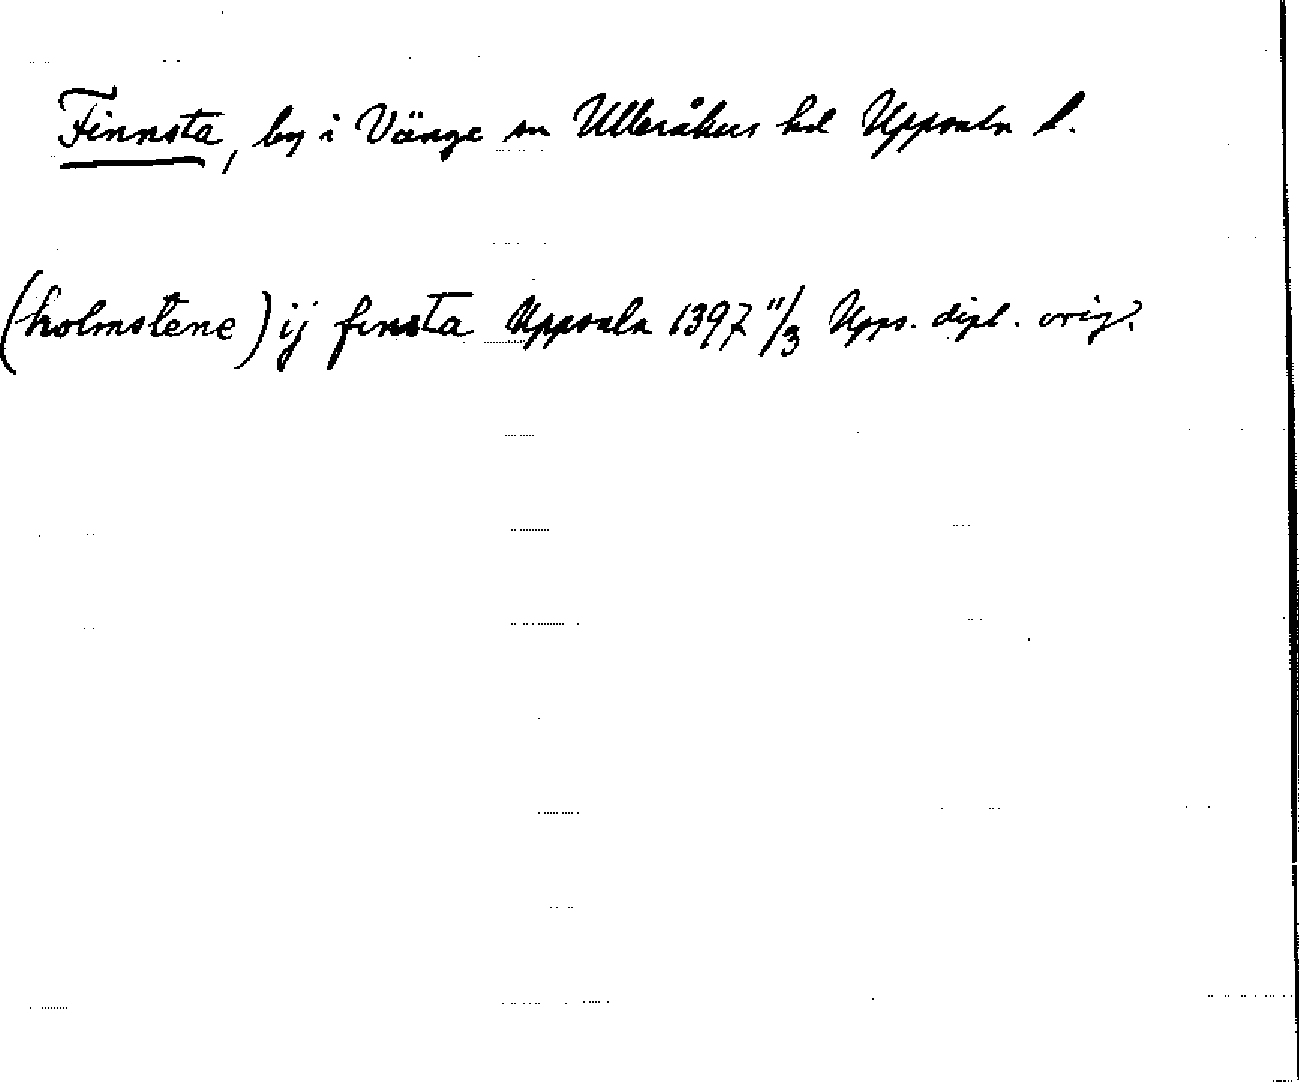 Finnsta, by i Vänge sn Ulleråkers hd Uppsala l.
(holmstene) ij finsta Uppsala 1397 11/3 Upps. dipl. orig.